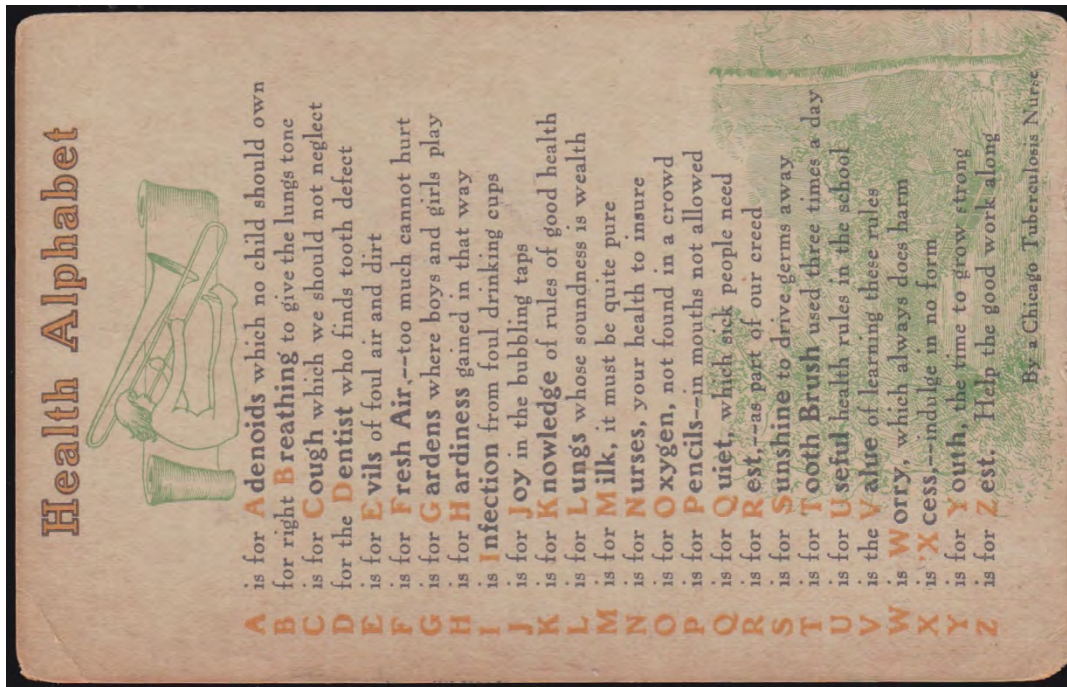 Health Alphabet
A is for Adenoids which no child should own
B for right Breathing to give the lungs tone
C is for Cough which we should not neglect
D for the Dentist who finds tooth defect
E is for Evils of foul air and dirt
F is for Fresh Air,--too much cannot hurt
G is for Gardens where boys and girls play
H is for Hardiness gained in that way
I is Infection from foul drinking cups
J is for Joy in the bubbling taps
K is for Knowledge of rules of good health
L is for Lungs whose soundness is wealth
M is for Milk, it must be quite pure
N is for Nurses, your health to insure
O is for Oxygen, not found in a crowd
P is for Pencils--in mouths not allowed
Q is for Quiet, which sick people need
R is for Rest,--as part of our creed
S is for Sunshine to drive germs away
T is for Tooth Brush used three times a day
U is for Useful health rules in the school
V is the Value of learning these rules
W is Worry, which always does harm
X is 'Xcess,--indulge in no form
Y is for Youth, the time to grow strong
Z is for Zest. Help the good work along
By a Chicago Tuberculosis Nurse